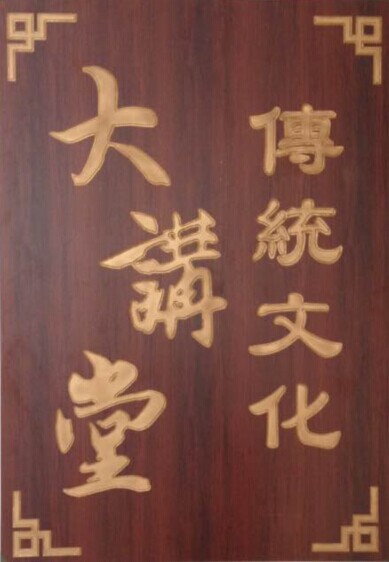 傳統文化
大講堂